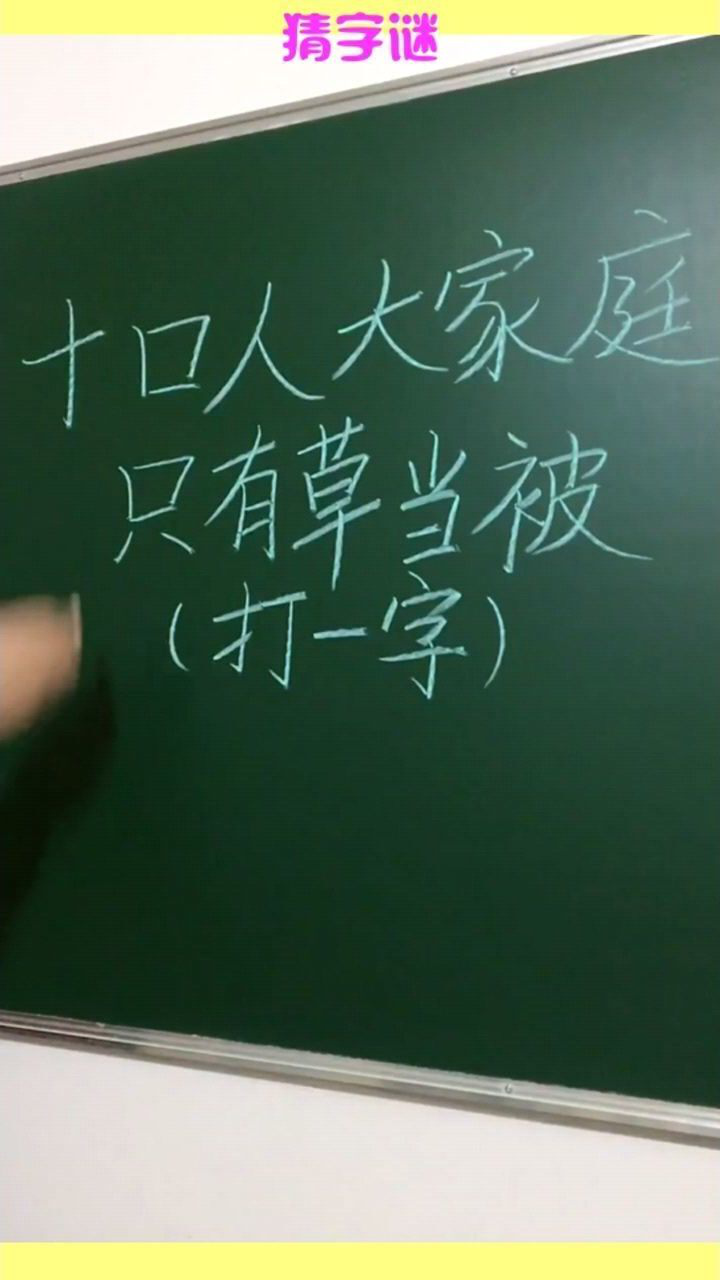 猜字谜
十口人大家庭
只有草当被
(打一字)